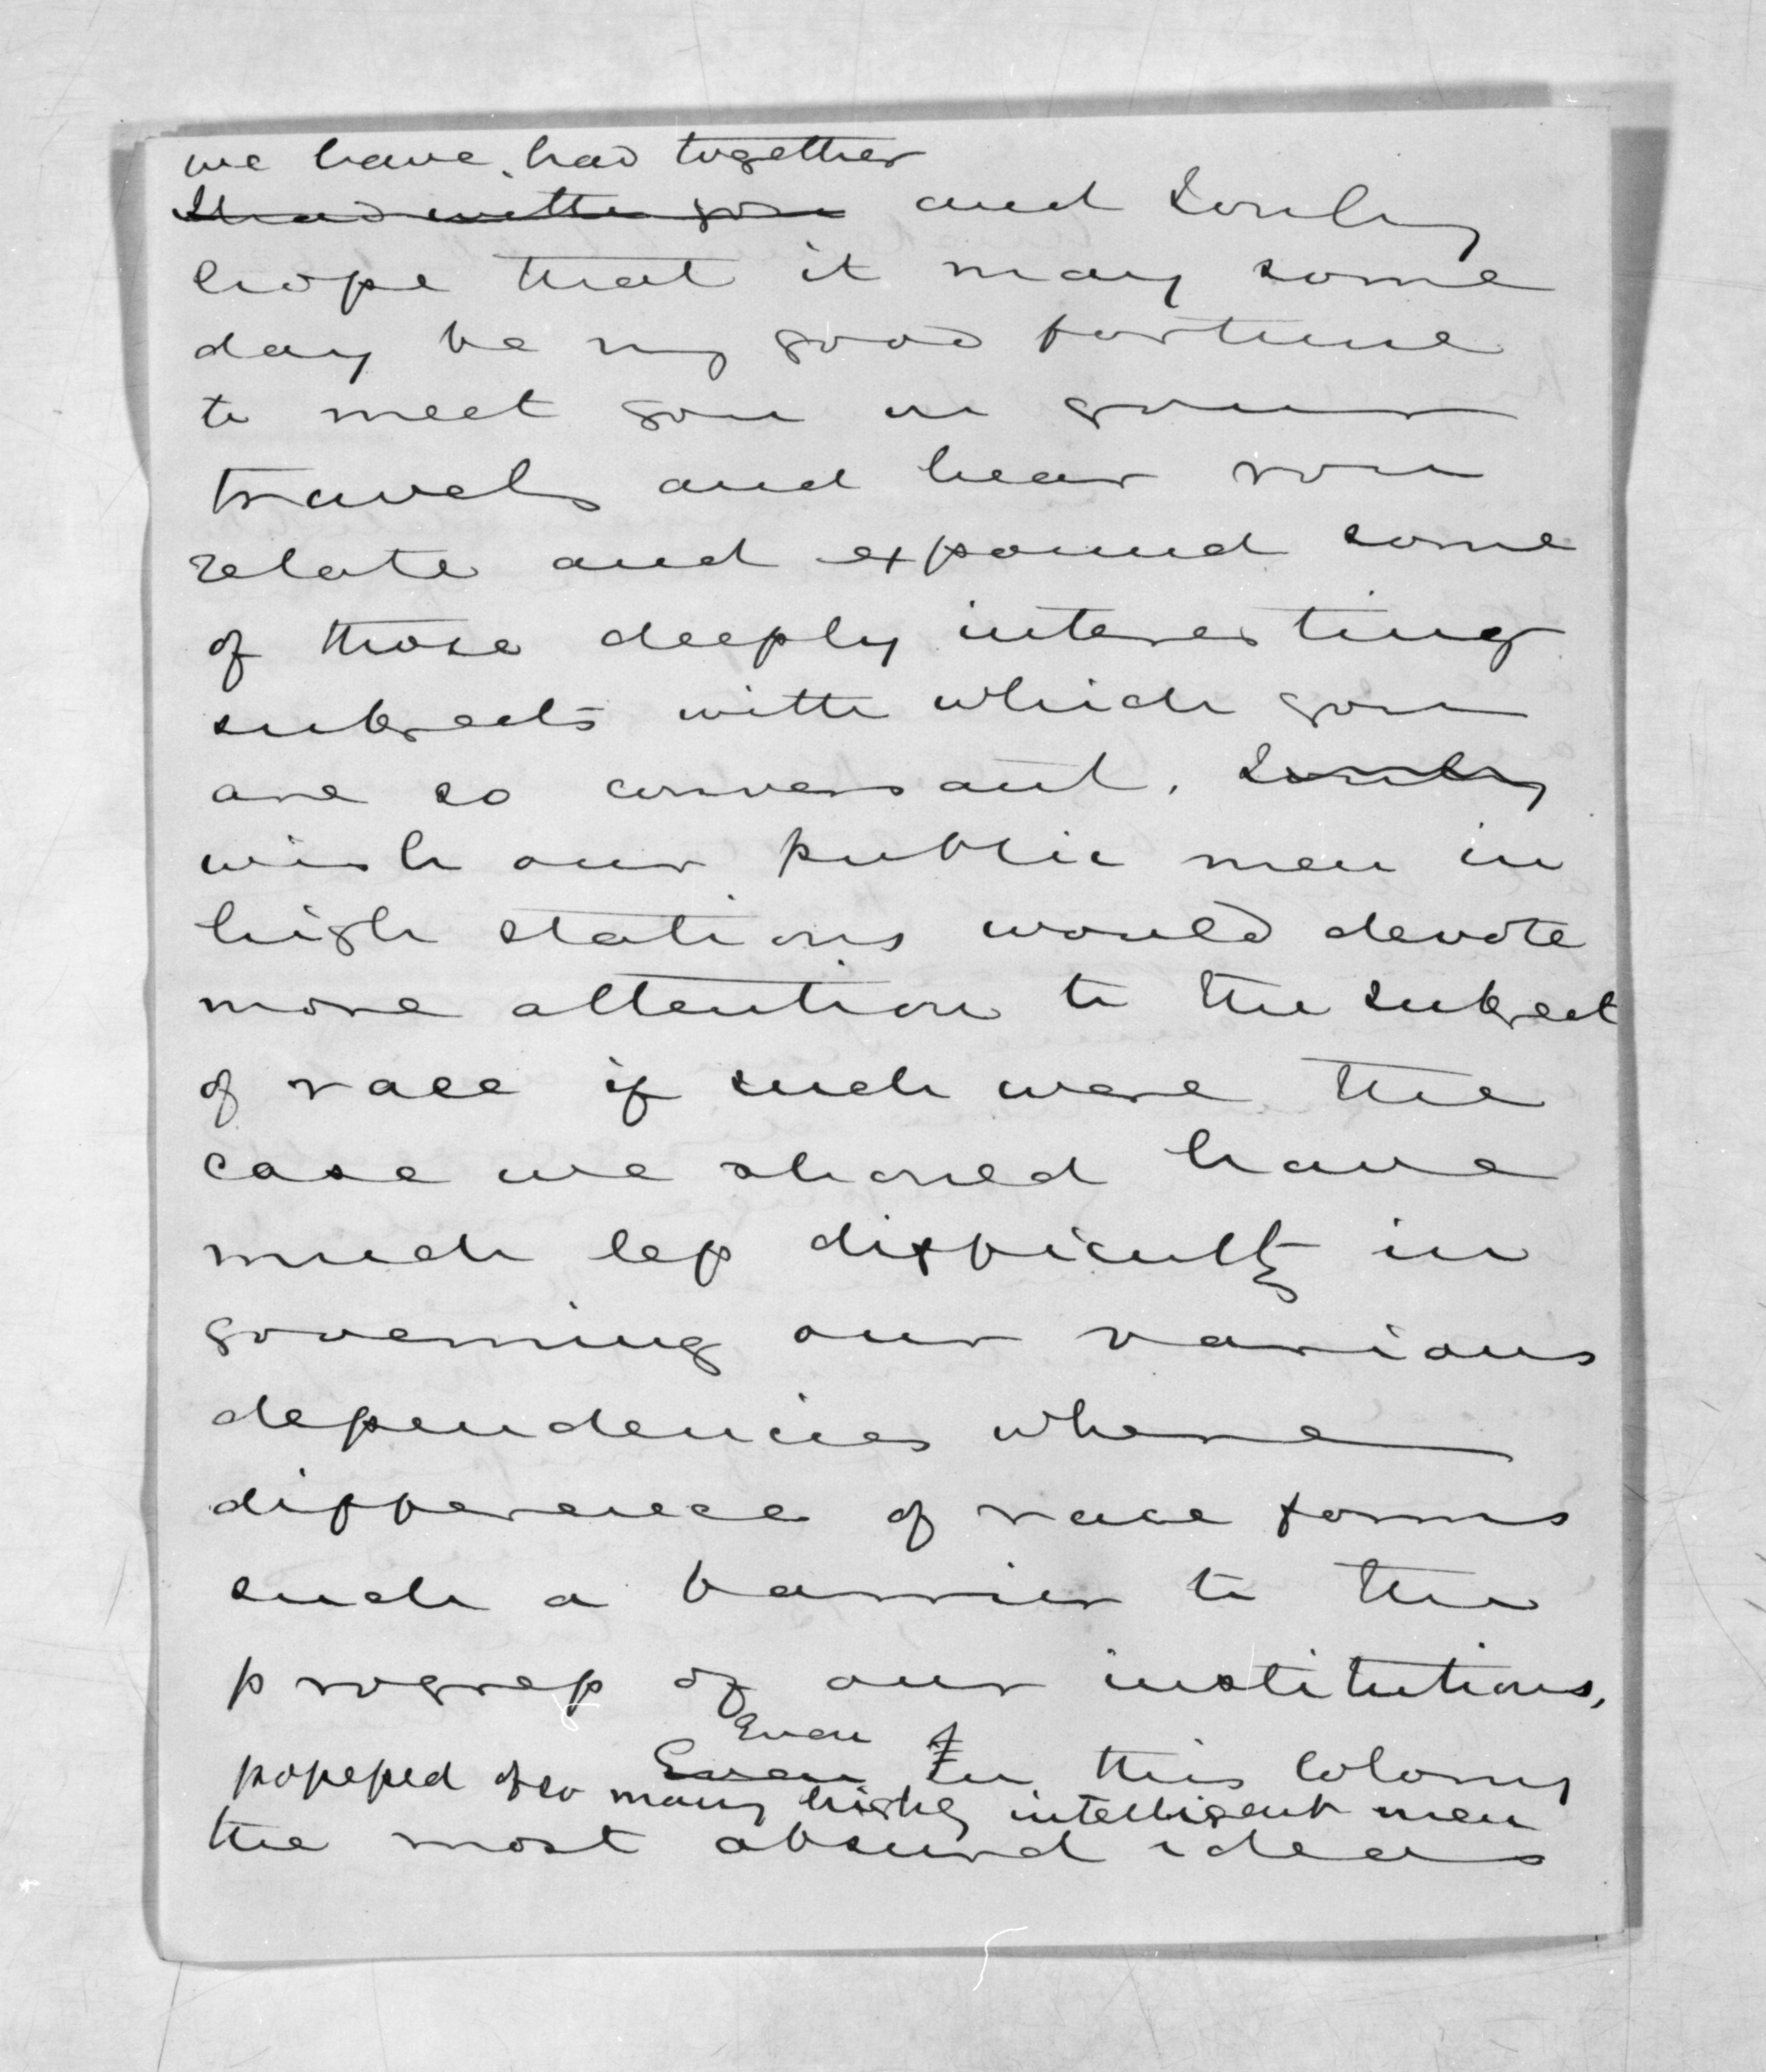 we have had together
I had with you and I only
hope that it may some
day be my good fortune
to meet you in your
travels and hear you
relate and expound some
of those deeply interesting
subjects with which you
are so conversant. I only
wish our public men in
high stations would devote
more attention to the subject
of race if such were the
case we should have
much less difficulty in
governing our various
dependencies where
difference of race forms
such a barrier to the
progress of our institutions,
Even
Even In this Colony
possessed of so many highly intelligent men
the most absurd ideas